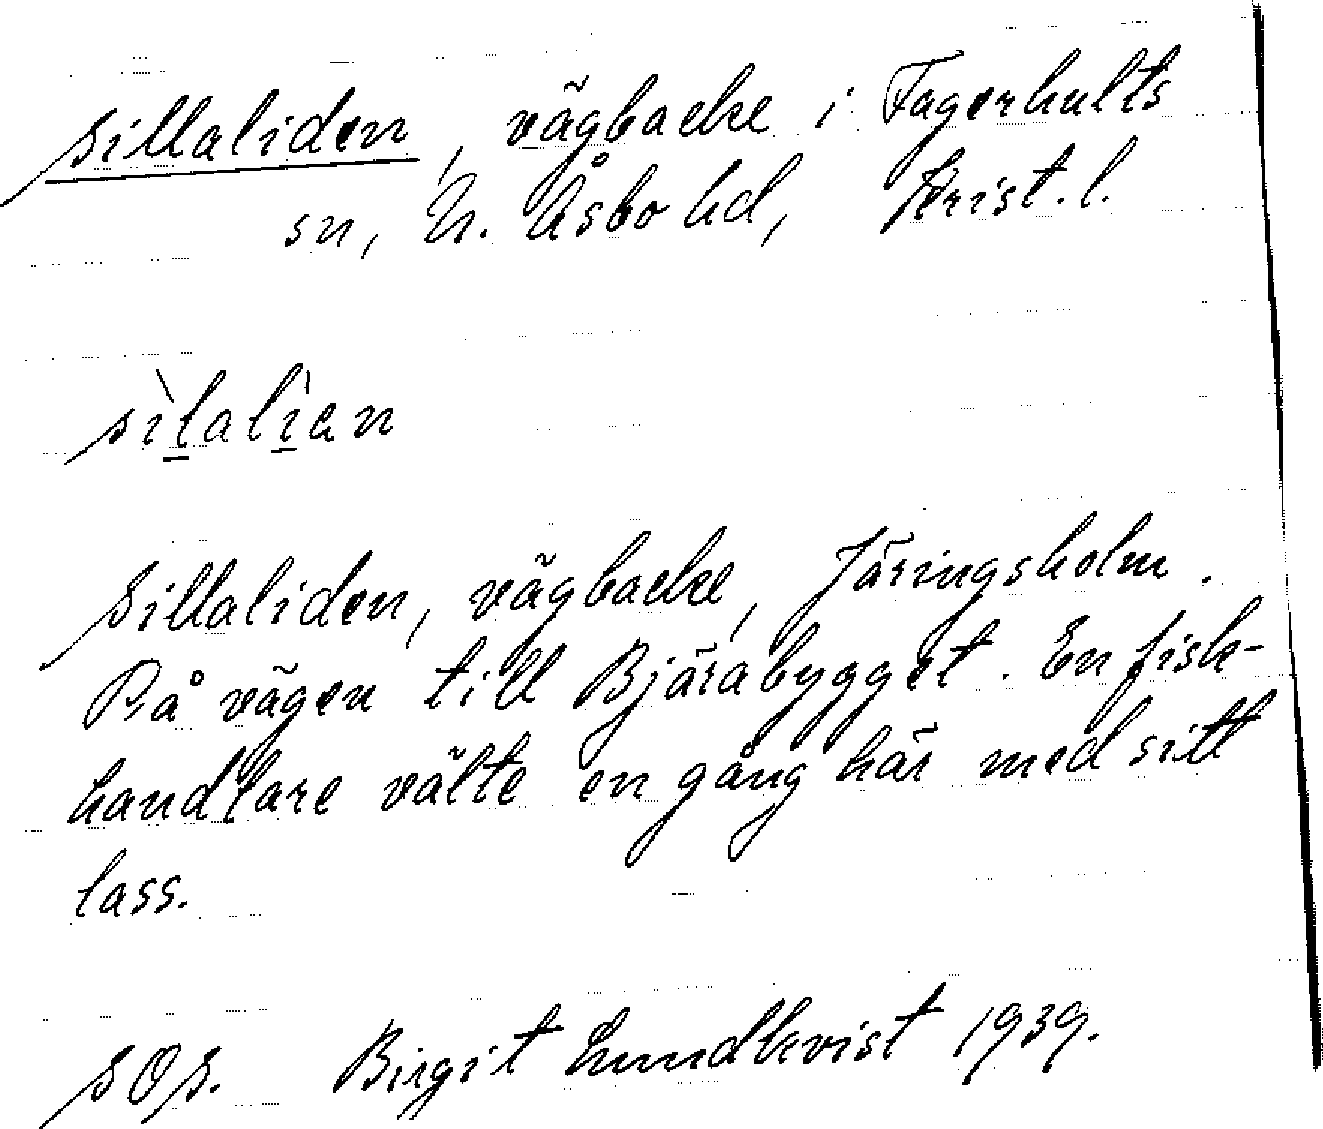 Sillaliden, vägbacke i Fagerhults
sn, N. Åsbo hd, Krist. l.
sìlalìan
Sillaliden, vägbacke, Järingsholm.
På vägen till Bjärabygget. En fisk-
handlare välte en gång här med sitt
lass.
SOS. Birgit Lundkvist 1939.